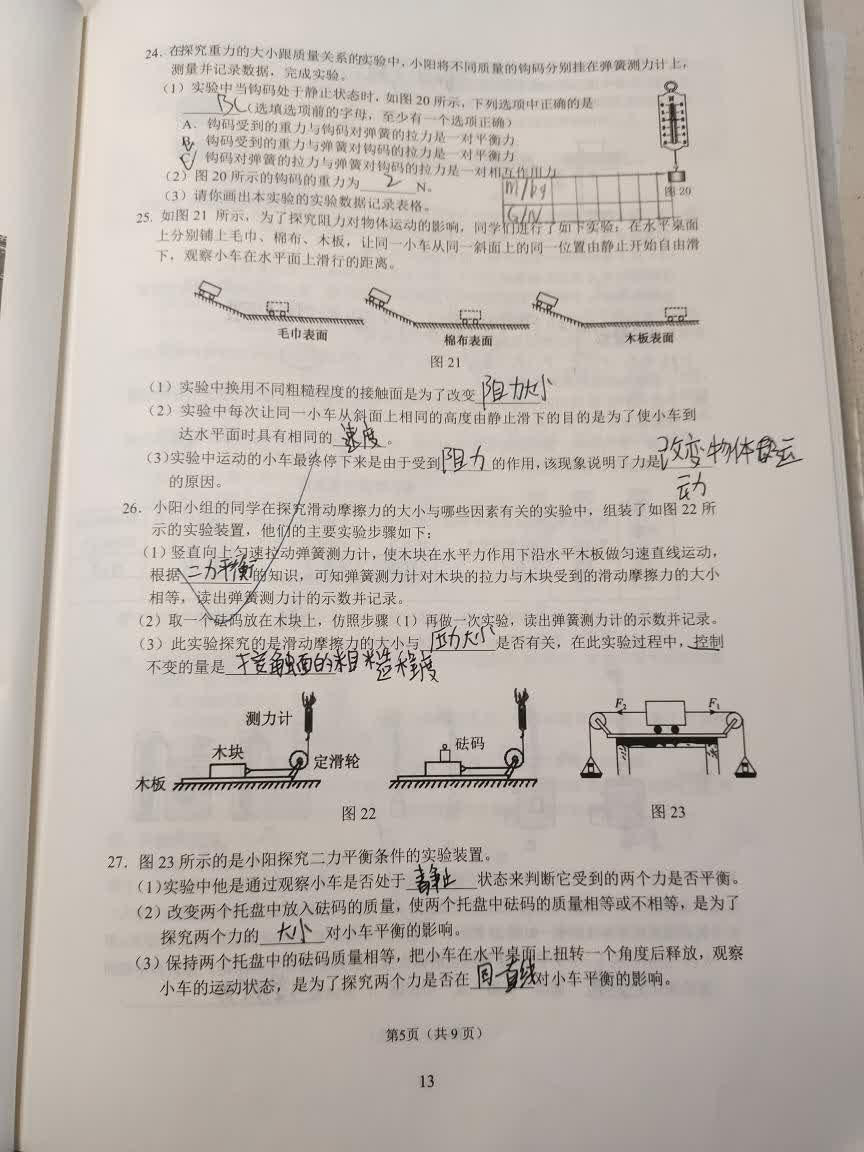 24. 在探究重力的大小跟质量关系的实验中，小阳将不同质量的钩码分别挂在弹簧测力计上，
测量并记录数据，完成实验。
(1) 实验中当钩码处于静止状态时，如图 20 所示，下列选项中正确的是
BC(选填选项前的字母，至少有一个选项正确)
A. 钩码受到的重力与钩码对弹簧的拉力是一对平衡力
B. 钩码受到的重力与弹簧对钩码的拉力是一对平衡力
C. 钩码对弹簧的拉力与弹簧对钩码的拉力是一对相互作用力
(2) 图 20 所示的钩码的重力为 2 N。
m/kg
图 20
(3) 请你画出本实验的实验数据记录表格。
G/N
25. 如图 21 所示，为了探究阻力对物体运动的影响，同学们进行了如下实验：在水平桌面
上分别铺上毛巾、棉布、木板，让同一小车从同一斜面上的同一位置由静止开始自由滑
下，观察小车在水平面上滑行的距离。
毛巾表面 棉布表面 木板表面
图 21
(1) 实验中换用不同粗糙程度的接触面是为了改变 阻力大小
(2) 实验中每次让同一小车从斜面上相同的高度由静止滑下的目的是为了使小车到
达水平面时具有相同的 速度 。
(3)实验中运动的小车最终停下来是由于受到 阻力 的作用，该现象说明了力是 改变物体运
动
的原因。
26. 小阳小组的同学在探究滑动摩擦力的大小与哪些因素有关的实验中，组装了如图 22 所
示的实验装置，他们的主要实验步骤如下：
(1) 竖直向上匀速拉动弹簧测力计，使木块在水平力作用下沿水平木板做匀速直线运动，
根据 二力平衡 的知识，可知弹簧测力计对木块的拉力与木块受到的滑动摩擦力的大小
相等，读出弹簧测力计的示数并记录。
(2) 取一个砝码放在木块上，仿照步骤（1）再做一次实验，读出弹簧测力计的示数并记录。
(3) 此实验探究的是滑动摩擦力的大小与 压力大小 是否有关，在此实验过程中，控制
不变的量是 接触面的粗糙程度
测力计
木块
定滑轮
木板
砝码
F₂ F₁
图 22
图 23
27. 图 23 所示的是小阳探究二力平衡条件的实验装置。
(1)实验中他是通过观察小车是否处于 静止 状态来判断它受到的两个力是否平衡。
(2) 改变两个托盘中放入砝码的质量，使两个托盘中砝码的质量相等或不相等，是为了
探究两个力的 大小 对小车平衡的影响。
(3) 保持两个托盘中的砝码质量相等，把小车在水平桌面上扭转一个角度后释放，观察
小车的运动状态，是为了探究两个力是否在 同一直线 对小车平衡的影响。
第5页（共 9 页）
13